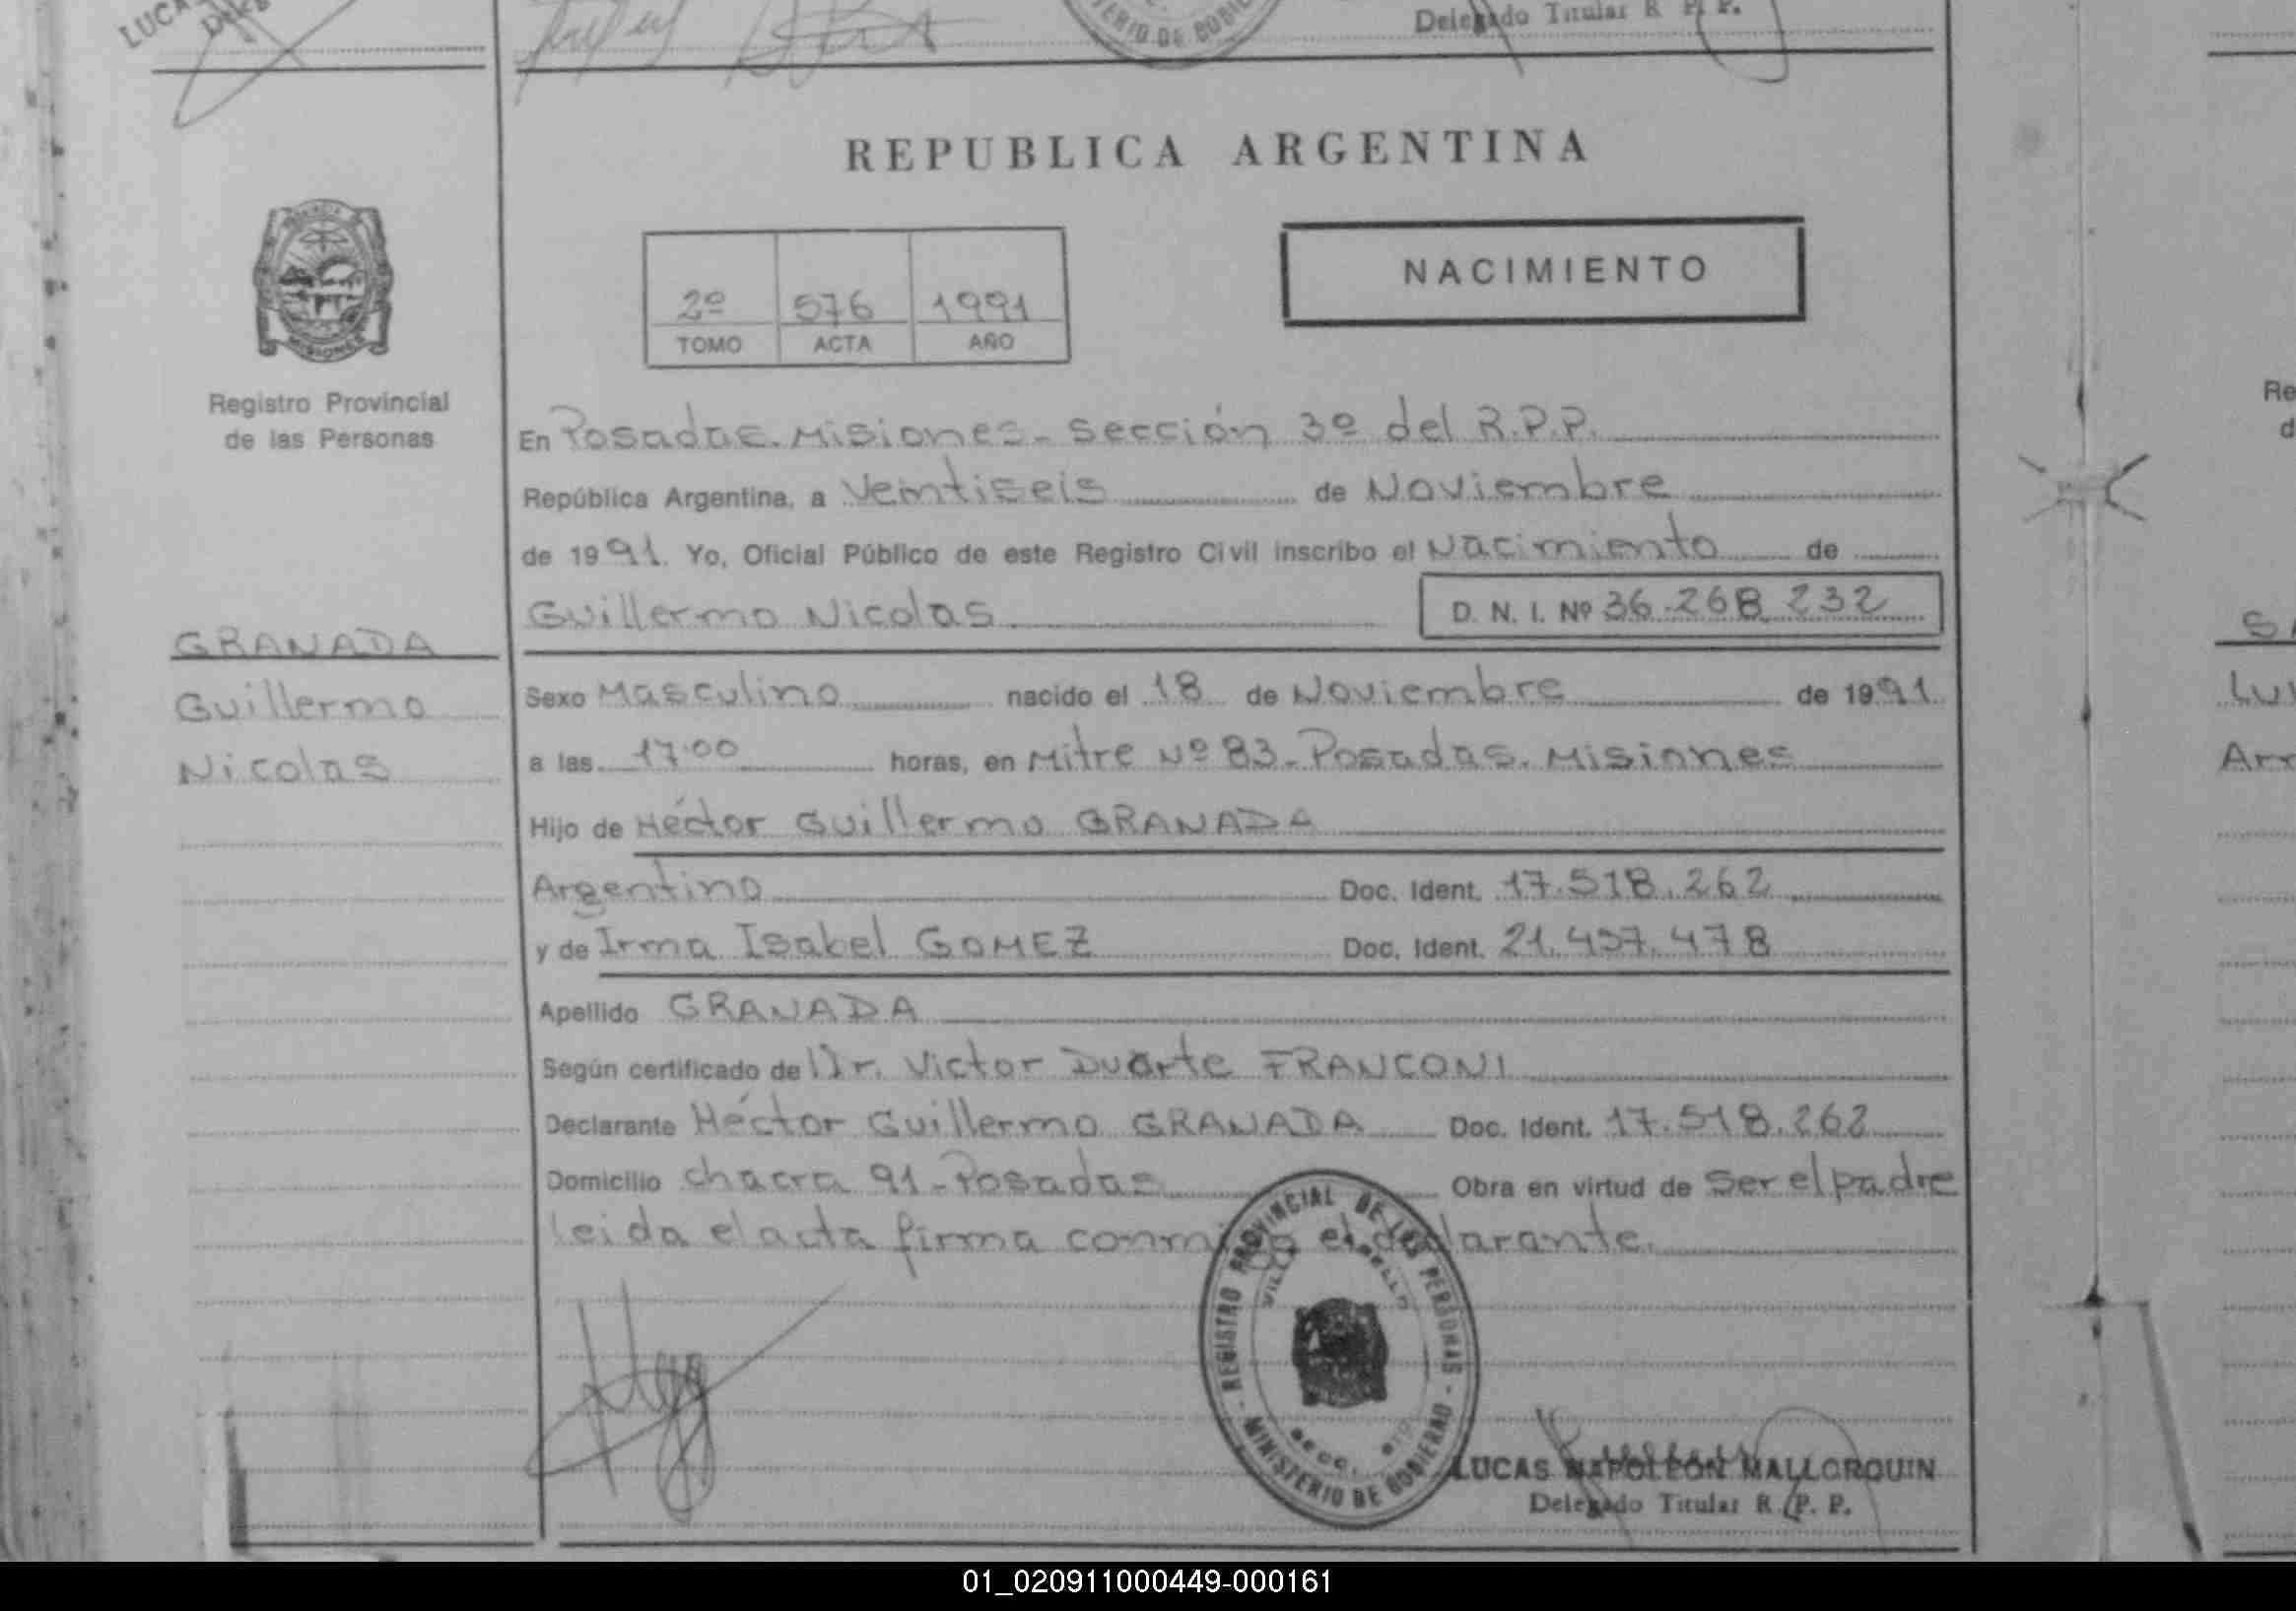 LUCA
Deleg
TERIO DE GOBIE
Delegado Titular R. P. P.
REPUBLICA ARGENTINA
NACIMIENTO
2º 576 1991
TOMO ACTA AÑO
MISIONES
Registro Provincial
de las Personas
En Posadas. Misiones. Sección 3º del R.P.P.
República Argentina, a Veintiseis de Noviembre
de 1991. Yo, Oficial Público de este Registro Civil inscribo el Nacimiento de
Guillermo Nicolas D. N. I. Nº 36.268.232
GRANADA
Guillermo
Nicolas
Sexo Masculino nacido el 18 de Noviembre de 1991
a las 17:00 horas, en Mitre Nº 83 - Posadas. Misiones
Hijo de Héctor Guillermo GRANADA
Argentino Doc. Ident. 17.518.262
y de Irma Isabel GOMEZ Doc. Ident. 21.437.478
Apellido GRANADA
Según certificado de Dr. Victor Duarte FRANCONI
Declarante Héctor Guillermo GRANADA Doc. Ident. 17.518.262
Domicilio chacra 91 - Posadas Obra en virtud de ser el padre
leida el acta firma conmigo el declarante.
REGISTRO PROVINCIAL DE LAS PERSONAS - MINISTERIO DE GOBIERNO -
LUCAS NAPOLEON MALLORQUIN
Delegado Titular R. P. P.
Re
d
Lu
Arr
01_020911000449-000161